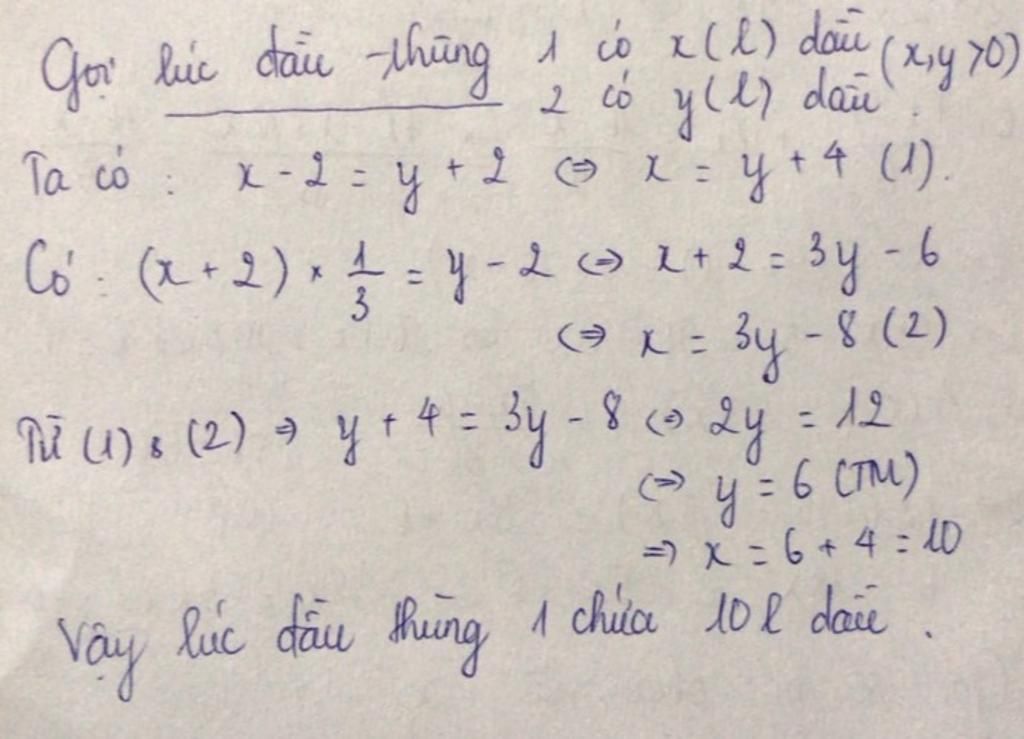 Gọi lúc đầu thùng 1 có x(l) dầu (x,y >0)
2 có y(l) dầu.
Ta có : x - 2 = y + 2 ⇔ x = y + 4 (1).
Có : (x + 2) × 1/3 = y - 2 ⇔ x + 2 = 3y - 6
⇔ x = 3y - 8 (2)
Từ (1) & (2) ⇒ y + 4 = 3y - 8 ⇔ 2y = 12
⇔ y = 6 (TM)
⇒ x = 6 + 4 = 10
Vậy lúc đầu thùng 1 chứa 10 l dầu .